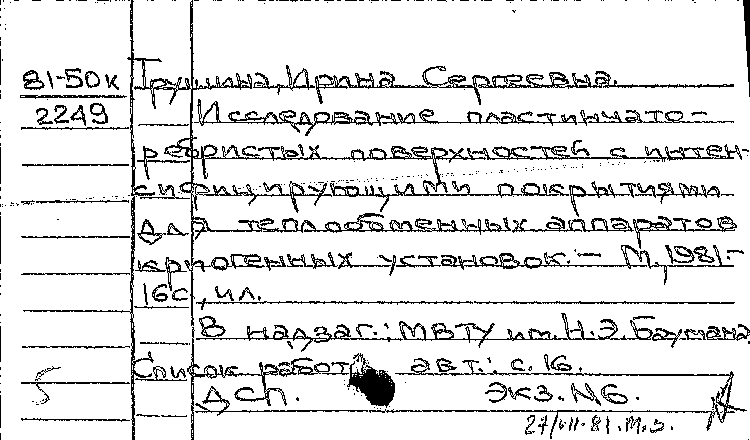 81-50к Трушина, Ирина Сергеевна.
2249 Исследование пластинчато-
ребристых поверхностей с интен-
сифицирующими покрытиями
для теплообменных аппаратов
криогенных установок. - М., 1981.-
16с., ил.
В надзаг.: МВТУ им. Н.Э. Баумана
Список работ авт.: с. 16.
5 ДСП. Экз. №6.
27/VII-81.М.З.